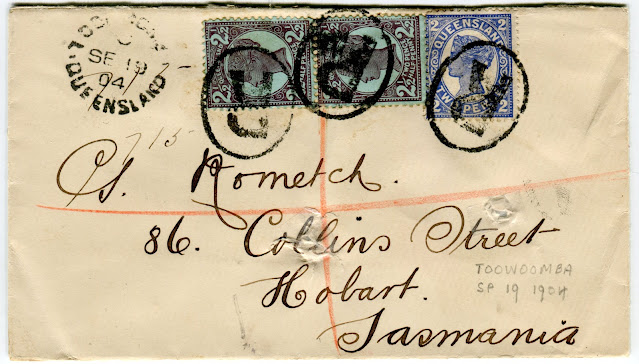 SE 19
04
QUEENSLAND
2½ 2½
HALF PENNY
QUEENSLAND
2 2
715
Cs. Rometch.
86. Collins Street
Hobart.
Tasmania
TOOWOOMBA
SP 19 1904